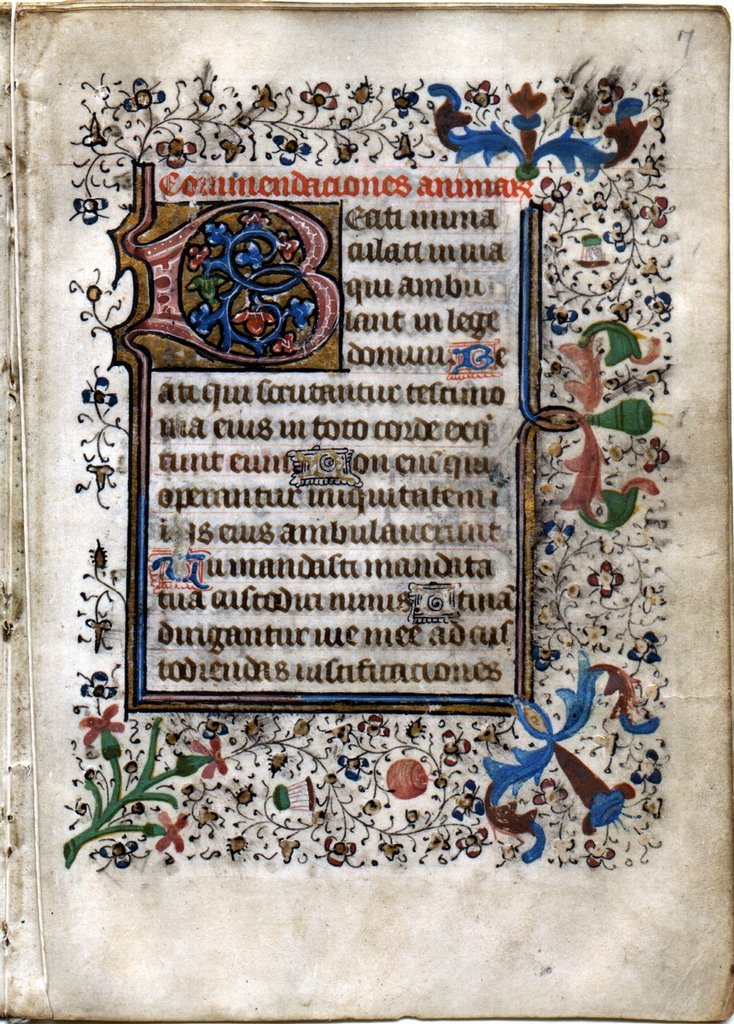 7
Commendaciones animarum
Beati imma
culati in via
qui ambu
lant in lege
domini. Be
ati qui scrutantur testimo
nia eius in toto corde exq̄
runt eum Non eni qui
operantur iniquitatem i
i is eius ambulaverunt
Tu mandasti mandata
tua custodiri nimis Utinā
dirigantur vie mee ad cus
todiendas iustificaciones